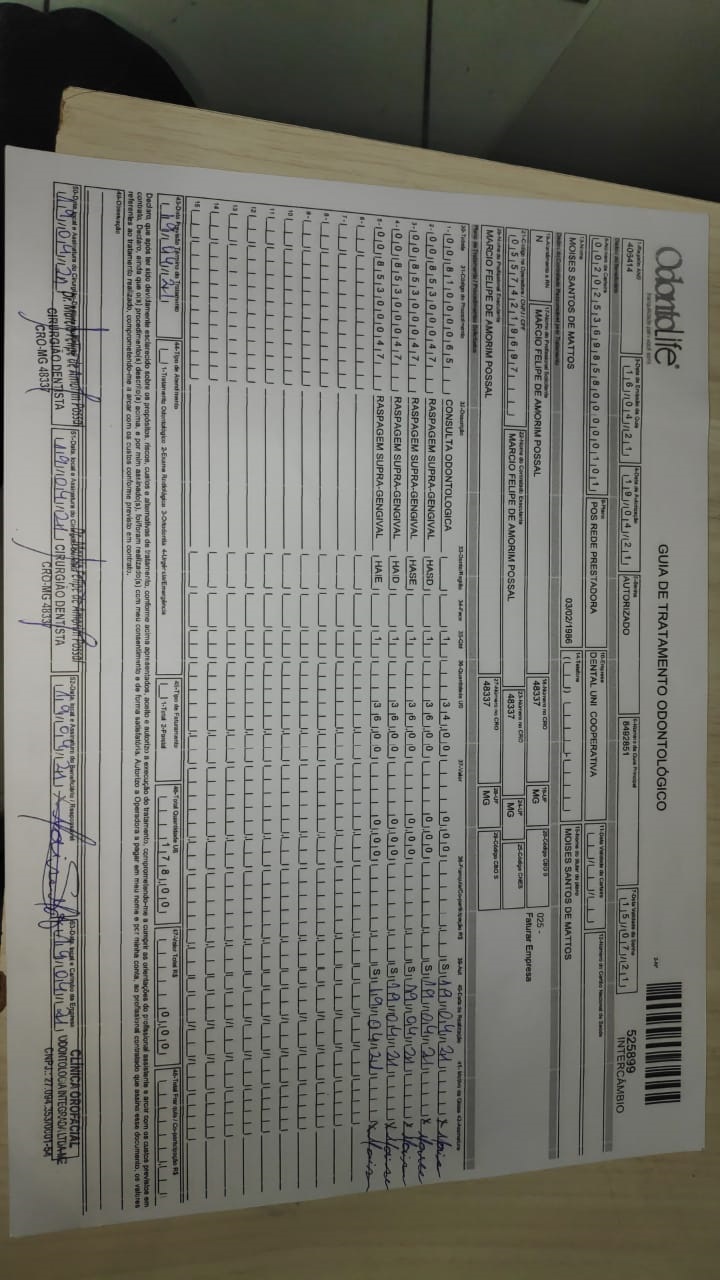 Odontolife®
GUIA DE TRATAMENTO ODONTOLÓGICO
525899
INTERCÂMBIO
1-Registro ANS
406414
3-Data de Emissão da Guia
16/04/21
4-Data de Autorização
19/04/21
5-Senha
AUTORIZADO
6-Número da Guia Principal
8492851
7-Data Validade da Senha
15/07/21
8-Número da Carteira
00202536985800000101
9-Plano
POS REDE PRESTADORA
10-Empresa
DENTAL UNI COOPERATIVA
11-Data Validade da Carteira
12-Número do Cartão Nacional de Saúde
13-Nome
MOISES SANTOS DE MATTOS
03/02/1986
14-Telefone
15-Nome do titular do plano
MOISES SANTOS DE MATTOS
16-Atendimento a RN
N
17-Nome do Profissional Solicitante
MARCIO FELIPE DE AMORIM POSSAL
18-Número no CRO
48337
19-UF
MG
20-Código CBO S
025 -
Faturar Empresa
21-Código na Operadora / CNPJ / CPF
05574219697
22-Nome do Contratado Executante
MARCIO FELIPE DE AMORIM POSSAL
23-Número no CRO
48337
24-UF
MG
25-Código CNES
26-Nome do Profissional Executante
MARCIO FELIPE DE AMORIM POSSAL
27-Número no CRO
48337
28-UF
MG
29-Código CBO S
30-Tabela 31-Código do Procedimento 32-Descrição 33-Dente/Região 34-Face 35-Qtd 36-Quantidade US 37-Valor 38-Franquia/Co-participação R$ 39-Aut 40-Data de Realização 41- Motivo da Glosa 42-Assinatura
1- 00 81000065 CONSULTA ODONTOLOGICA 1 34,00 0,00 S 19/04/21
2- 00 85300047 RASPAGEM SUPRA-GENGIVAL HASD 1 36,00 0,00 S 19/04/21
3- 00 85300047 RASPAGEM SUPRA-GENGIVAL HASE 1 36,00 0,00 S 19/04/21
4- 00 85300047 RASPAGEM SUPRA-GENGIVAL HAID 1 36,00 0,00 S 19/04/21
5- 00 85300047 RASPAGEM SUPRA-GENGIVAL HAIE 1 36,00 0,00 S 19/04/21
6-
7-
8-
9-
10
11
12
13
14
15
43-Data Previsão Término do Tratamento
19/04/21
44-Tipo de Atendimento
1-Tratamento Odontológico 2-Exame Radiológico 3-Ortodontia 4-Urgência/Emergência
45-Tipo de Faturamento
1-Total 2-Parcial
46-Total Quantidade US
178,00
47-Valor Total R$
0,00
48-Total Franquia / Co-participação R$
Declaro que após ter sido devidamente esclarecido sobre os propósitos, riscos, custos e alternativas de tratamento, conforme acima apresentados, aceito e autorizo a execução do tratamento, comprometendo-me a cumprir as orientações do profissional assistente e arcar com os custos previstos em
contrato. Declaro, ainda que o(s) procedimento(s) descrito(s) acima, e por mim assinado(s), foi/foram realizado(s) com meu consentimento e de forma satisfatória. Autorizo a Operadora a pagar em meu nome e por minha conta, ao profissional contratado que assina esse documento, os valores
referentes ao tratamento realizado, comprometendo-me a arcar com os custos conforme previsto em contrato.
49-Observação
50-Data, local e Assinatura do Cirurgião-Dentista
19/04/21
CIRURGIÃO DENTISTA
CRO-MG 48337
19/04/21
CIRURGIÃO DENTISTA
CRO-MG 48337
52-Data, local e Assinatura do Beneficiário / Responsável
19/04/21
53-Data, local e Carimbo da Empresa
19/04/21
CLÍNICA OROFACIAL
ODONTOLOGIA INTEGRADA LTDA-ME